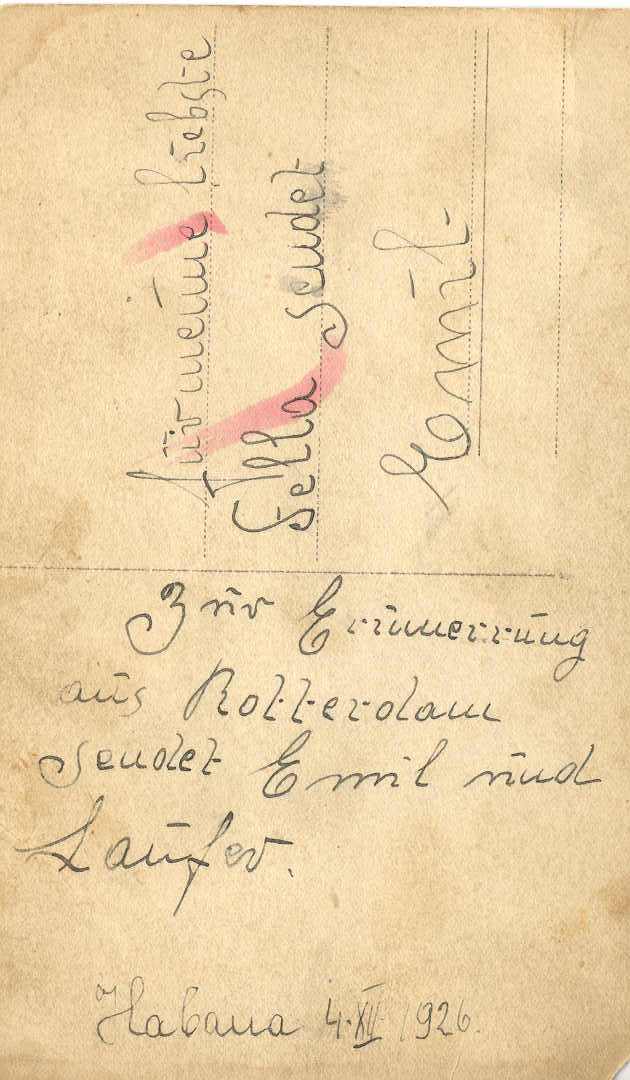 Für meine liebste
Sella sendet
Emil
Zur Erinnerrung
aus Rotterdam
sendet Emil und
Laufer.
Habana 4.XII.1926.